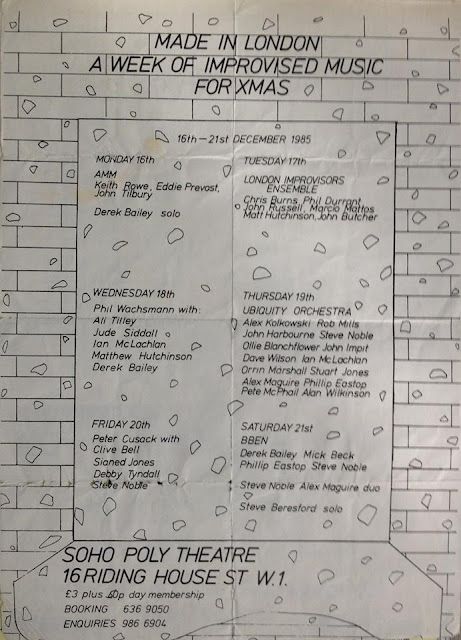 MADE IN LONDON
A WEEK OF IMPROVISED MUSIC
FOR XMAS
16th-21st DECEMBER 1985
MONDAY 16th
AMM
Keith Rowe, Eddie Prevost,
John Tilbury
Derek Bailey solo
TUESDAY 17th
LONDON IMPROVISORS
ENSEMBLE
Chris Burns, Phil Durrant,
John Russell, Marcio Mattos
Matt Hutchinson, John Butcher
WEDNESDAY 18th
Phil Wachsmann with:
Ali Tilley
Jude Siddall
Ian McLachlan
Matthew Hutchinson
Derek Bailey
THURSDAY 19th
UBIQUITY ORCHESTRA
Alex Kolkowski Rob Mills
John Harbourne Steve Noble
Ollie Blanchflower John Impit
Dave Wilson Ian McLachlan
Orrin Marshall Stuart Jones
Alex Maguire Phillip Eastop
Pete McPhail Alan Wilkinson
FRIDAY 20th
Peter Cusack with
Clive Bell
Sianed Jones
Debby Tyndall
Steve Noble
SATURDAY 21st
BBEN
Derek Bailey Mick Beck
Phillip Eastop Steve Noble
Steve Noble Alex Maguire duo
Steve Beresford solo
SOHO POLY THEATRE
16 RIDING HOUSE ST W.1.
£3 plus 60p day membership
BOOKING 636 9050
ENQUIRIES 986 6904